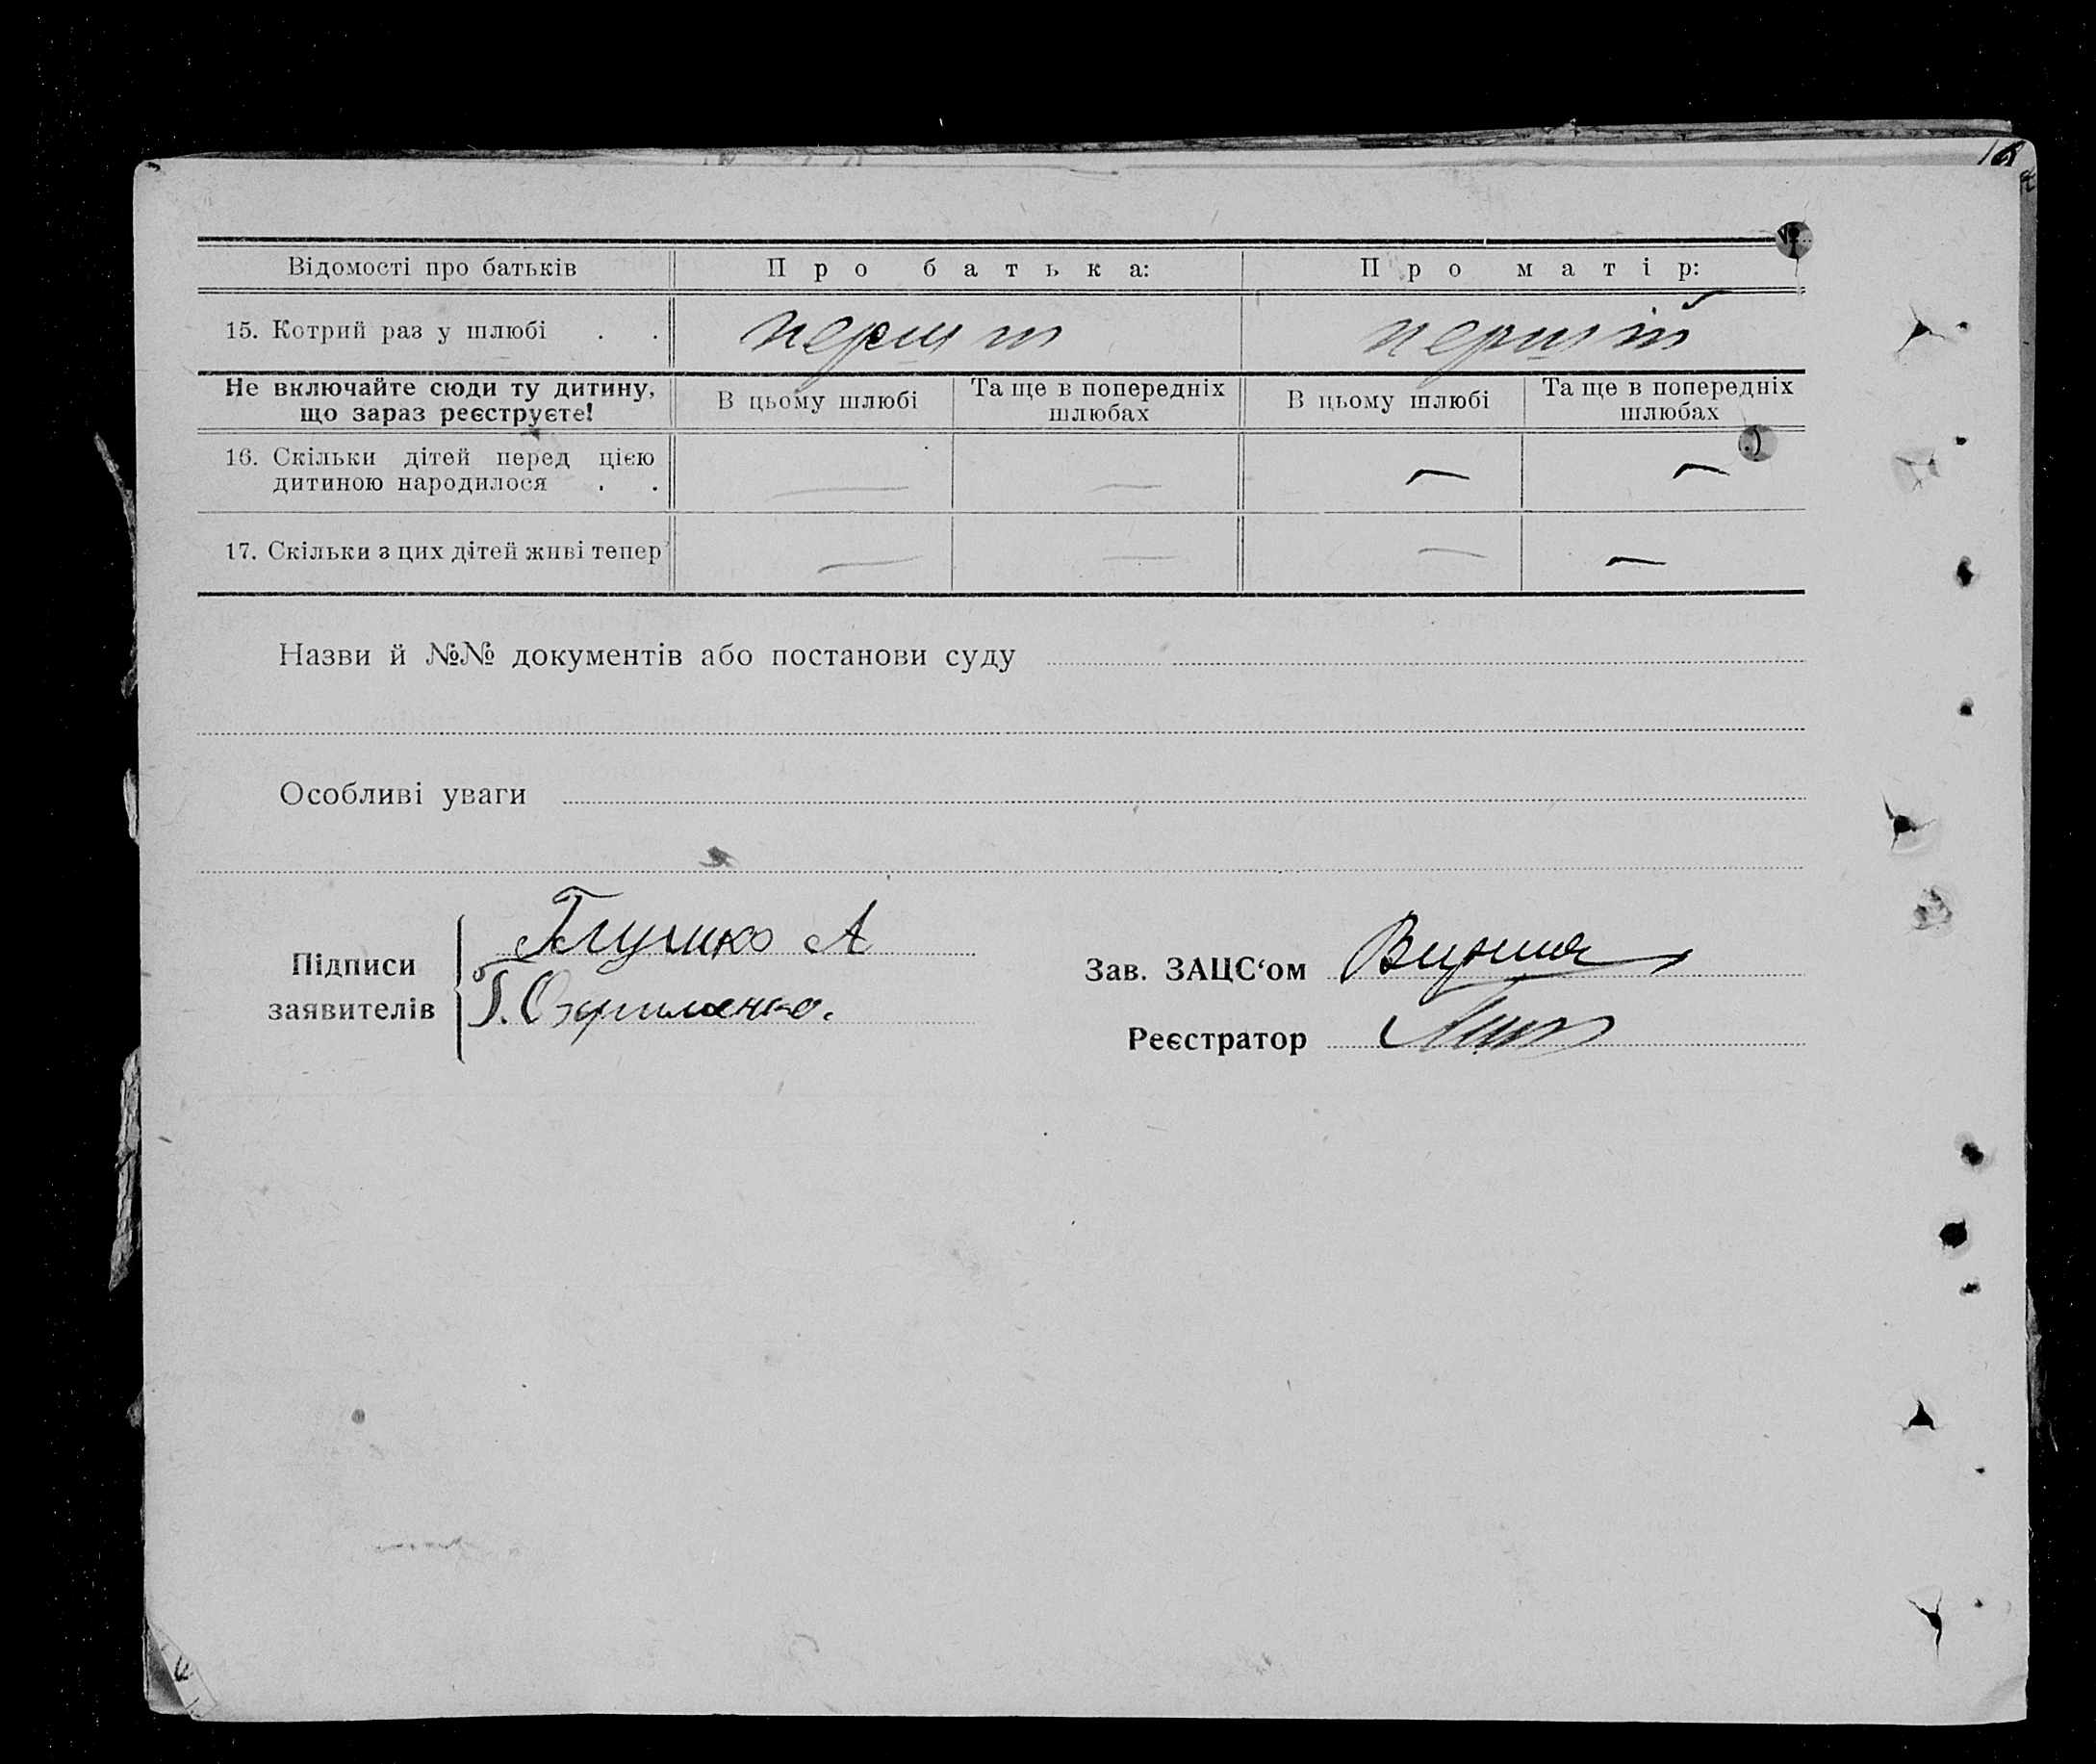 Відомості про батьків Про батька: Про матір:
15. Котрий раз у шлюбі . . перший перший
Не включайте сюди ту дитину, що зараз реєструєте!
В цьому шлюбі Та ще в попередніх шлюбах В цьому шлюбі Та ще в попередніх шлюбах
16. Скільки дітей перед цією
дитиною народилося . . — — — —
17. Скільки з цих дітей живі тепер — — — —
Назви й №№ документів або постанови суду
Особливі уваги
Підписи заявителів
Глушко А
Г. Охрименко.
Зав. ЗАЦС‘ом
Реєстратор